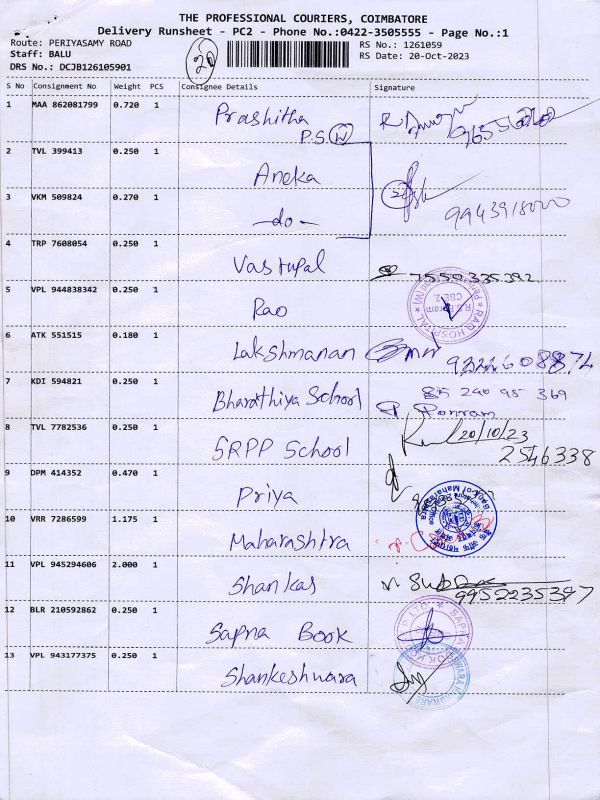 THE PROFESSIONAL COURIERS, COIMBATORE
Delivery Runsheet - PC2 - Phone No.:0422-3505555 - Page No.:1
Route: PERIYASAMY ROAD
Staff: BALU
DRS No.: DCJB126105901
20
RS No.: 1261059
RS Date: 20-Oct-2023
S No Consignment No Weight PCS Consignee Details Signature
1 MAA 862081799 0.720 1 Prashitha
P.S.W
2 TVL 399413 0.250 1 Aneka
3 VKM 509824 0.270 1 -do- 9943918000
4 TRP 7608054 0.250 1 Vastupal 7550335392
5 VPL 944838342 0.250 1 Rao
RAO HOSPITAL
CBE-2
6 ATK 551515 0.180 1 Lakshmanan
7 KDI 594821 0.250 1 Bharathiya School 85 240 95 369
P. Ponram
8 TVL 7782536 0.250 1 SRPP School 20/10/23
2546338
9 DPM 414352 0.470 1 Priya
10 VRR 7286599 1.175 1 Maharashtra
Bank of Maharashtra
11 VPL 945294606 2.000 1 Shankas
9952235397
12 BLR 210592862 0.250 1 Sapna Book
13 VPL 943177375 0.250 1 Shankeshwara